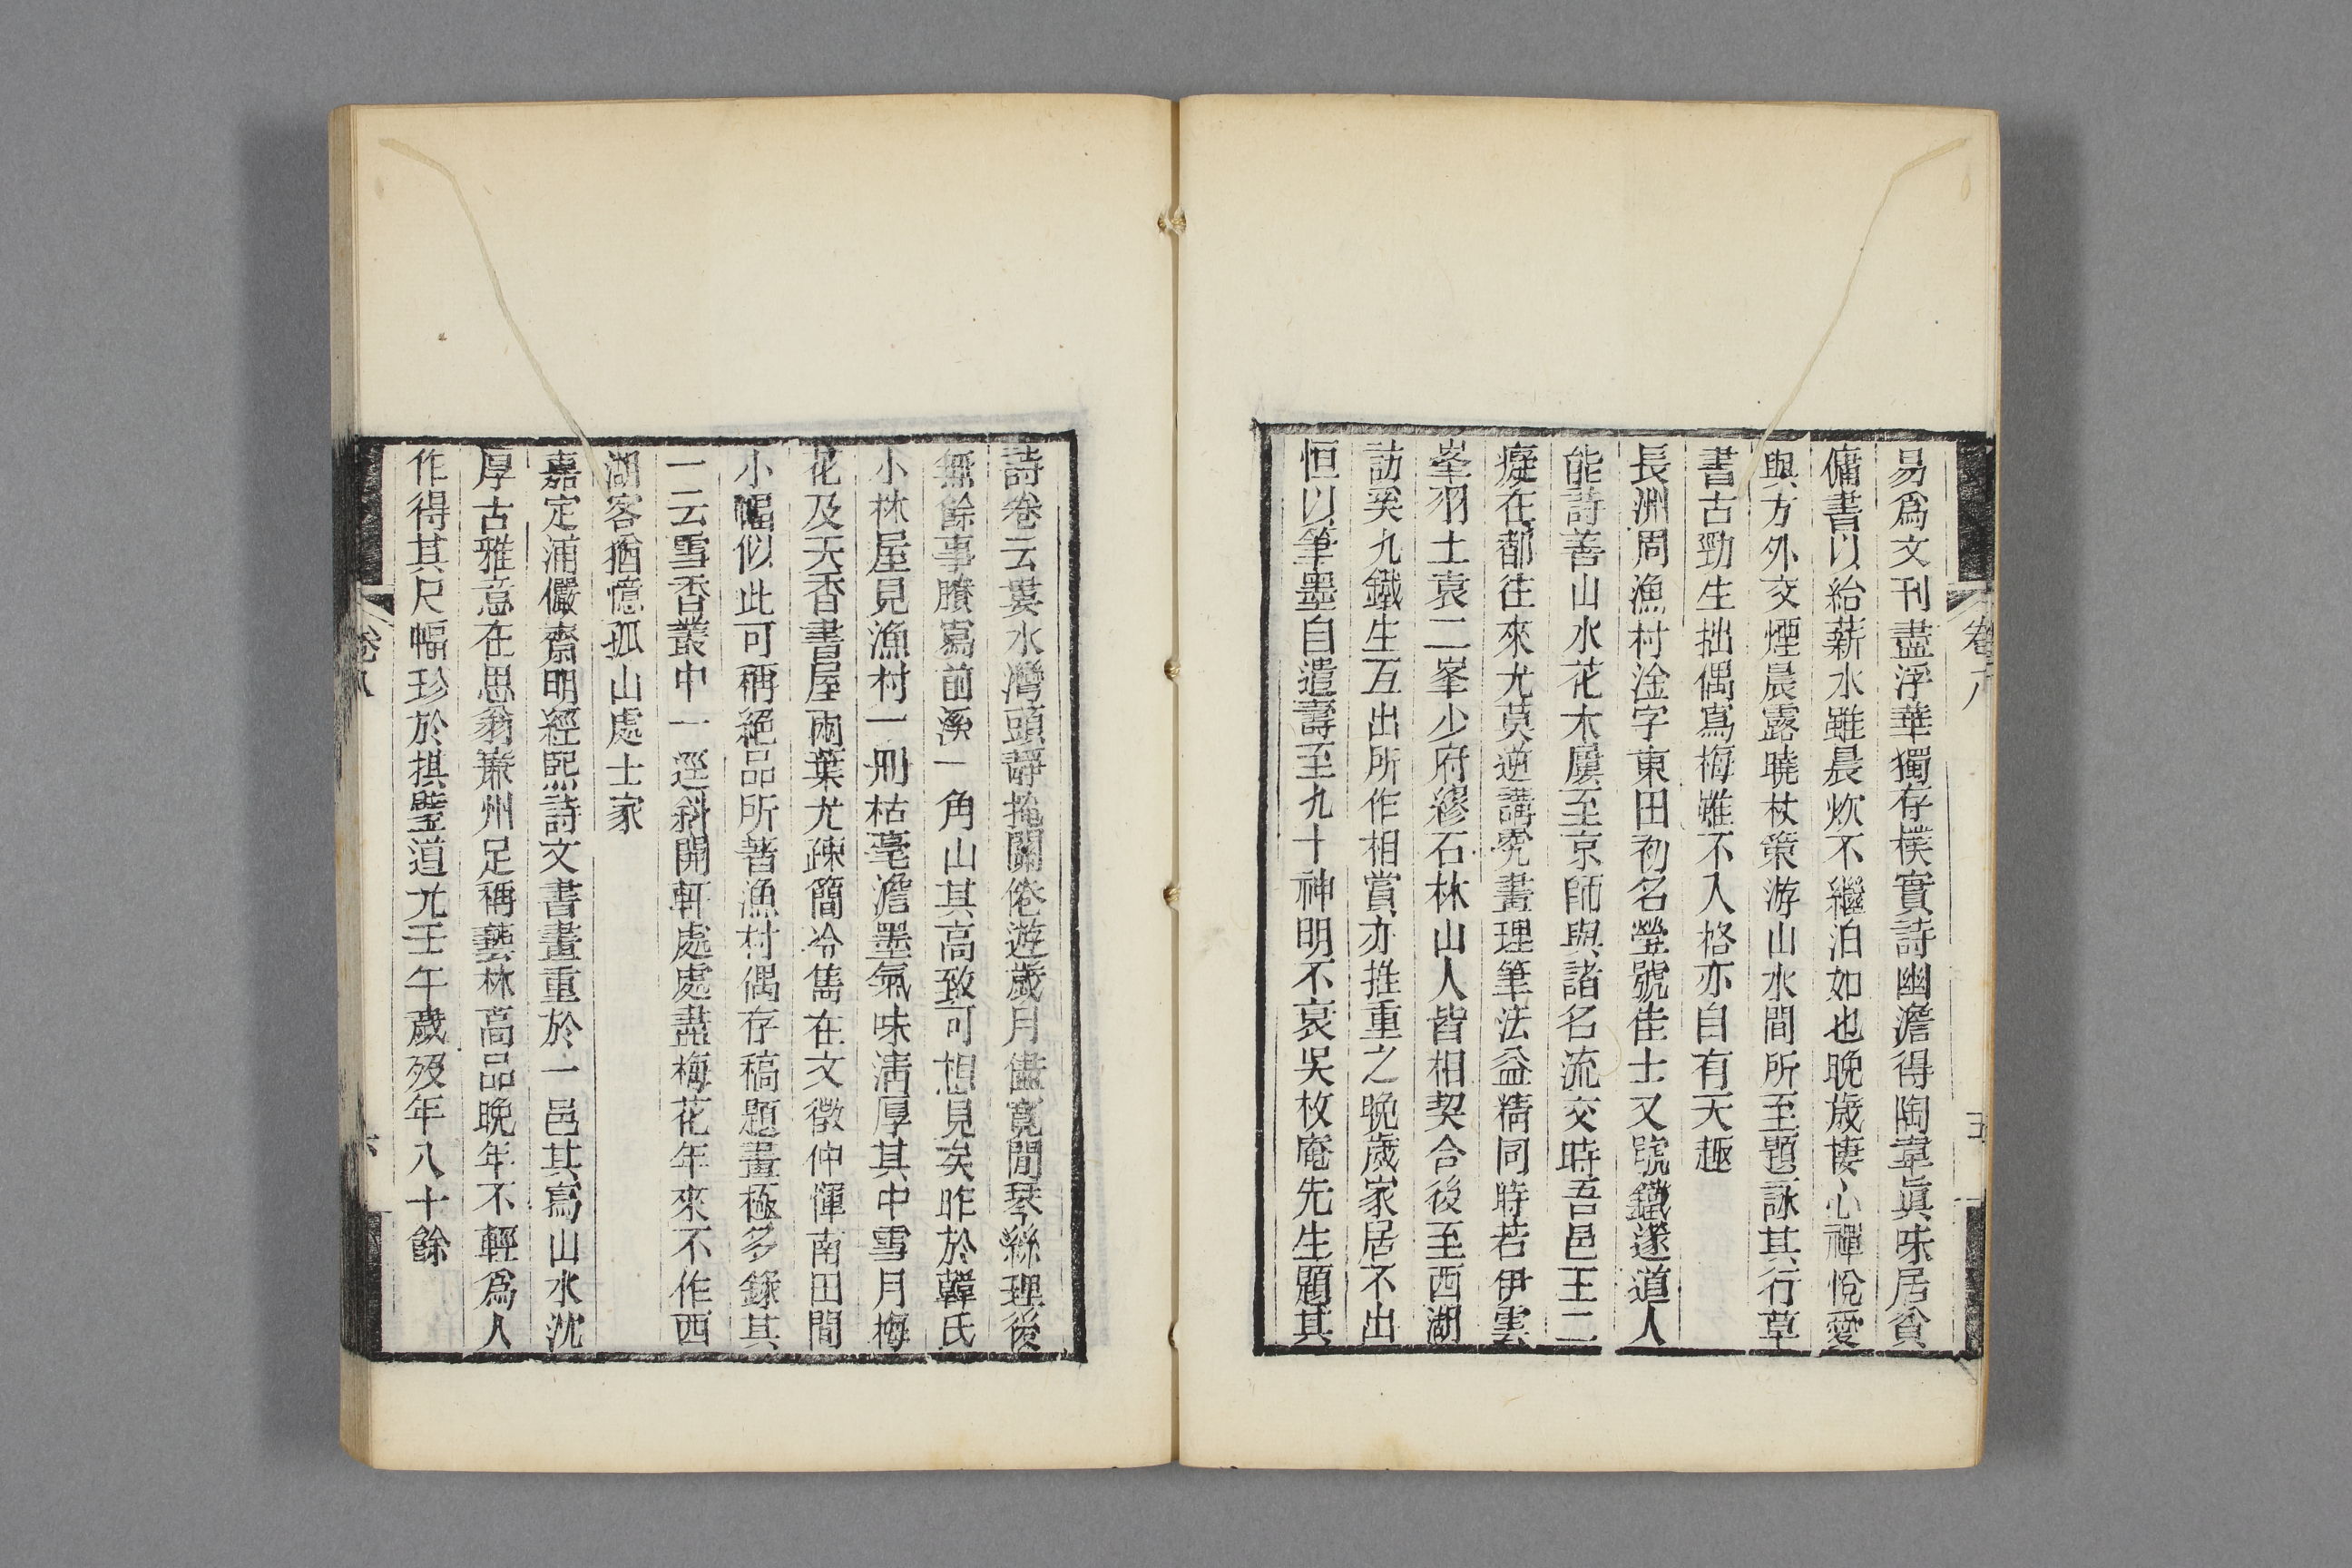 易爲文刊盡浮華獨存樸實詩幽澹得陶韋眞味居貧
傭書以給薪水雖晨炊不繼泊如也晚歲棲心禪悅愛
與方外交煙晨露曉杖策游山水間所至題詠其行草
書古勁生拙偶寫梅雖不入格亦自有天趣
長洲周漁村淦字東田初名瑩號隹士又號鐵邃道人
能詩善山水花木屢至京師與諸名流交時吾邑王二
癡在都往來尤莫逆講究畫理筆法益精同時若伊雲
峯羽士袁二峯少府繆石林山人皆相契合後至西湖
訪奚九鐵生互出所作相賞亦推重之晚歲家居不出
恒以筆墨自遣壽至九十神明不衰吳枚庵先生題其
卷八
五
詩卷云婁水灣頭靜掩關倦遊歲月儘寬閒琴絲理後
無餘事賸寫前溪一角山其高致可想見矣昨於韓氏
小林屋見漁村一冊枯毫澹墨氣味淸厚其中雪月梅
花及天香書屋兩葉尤疎簡冷雋在文徵仲惲南田間
小幅似此可稱絕品所著漁村偶存稿題畫極多錄其
一云雪香叢中一逕斜開軒處處盡梅花年來不作西
湖客猶憶孤山處士家
嘉定浦儼齋明經熙詩文書畫重於一邑其寫山水沈
厚古雅意在思翁廉州足稱藝林高品晚年不輕爲人
作得其尺幅珍於拱璧道光壬午歲歿年八十餘
卷八
六